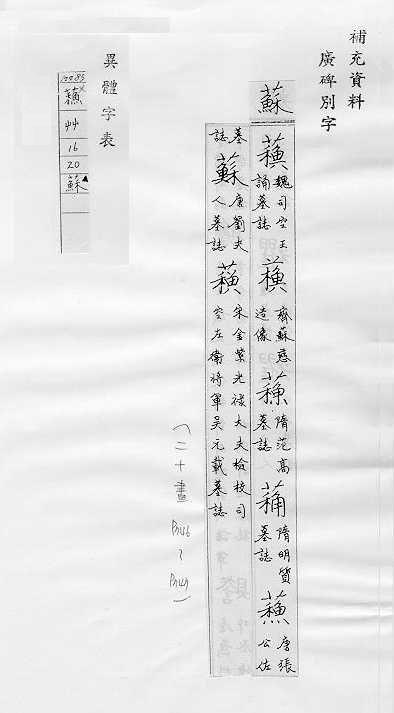 補充資料
廣碑別字
蘇
蘓魏司空王誦墓誌 蘓齊蘇慈造像 蘓隋范高墓誌 隋明質墓誌 蘓唐張公佐
墓誌 蘇唐劉夫人墓誌 蘓宋金紫光祿大夫檢校司空左衛將軍吳元載墓誌
(二十畫 P346~P349)
異體字表
蘓
艸
16
20
蘇